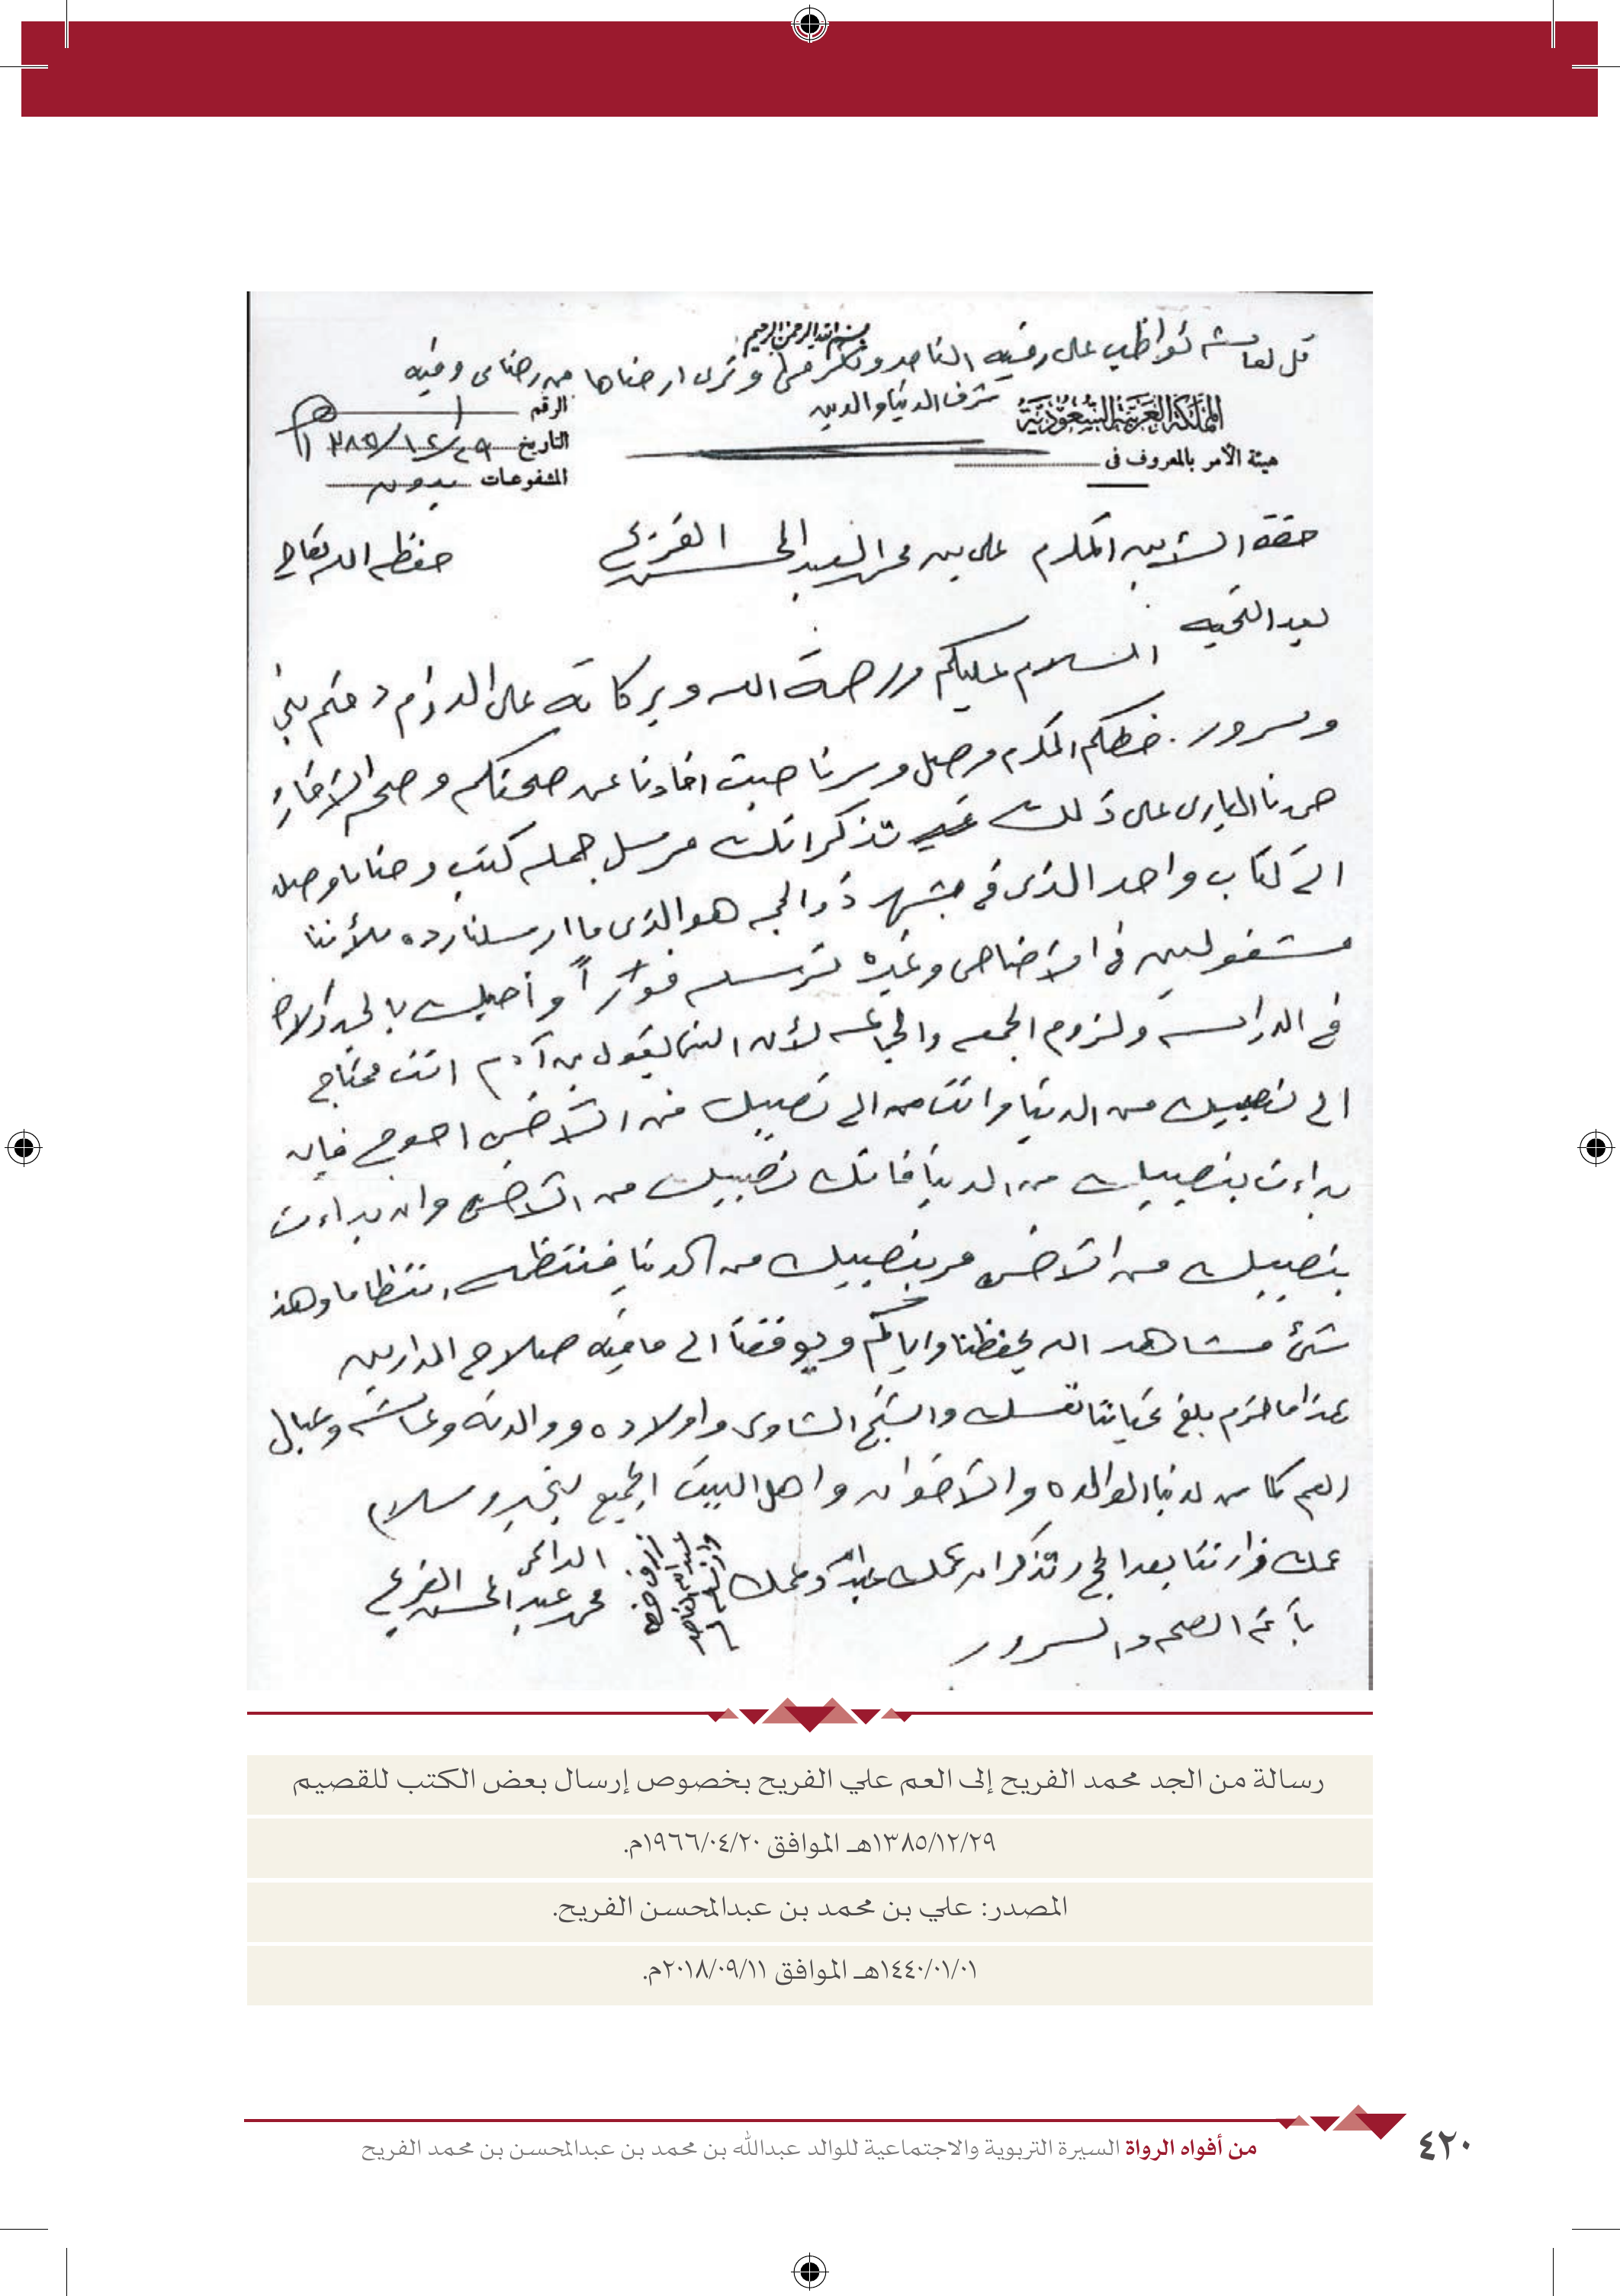 بسم الله الرحمن الرحيم
قل لعائشه تواظب على رقيه الناصر وتكرمها وترى ارضاها من رضاى وفيه
شرف الدنيا والدين
المملكة العربية السعودية
هيئة الأمر بالمعروف فى
الرقم
التاريخ ١٣٨٥/١٢/٢٩
المشفوعات بدون
حضرة الابن المكرم على بن محمد العبدالمحسن الفريح حفظه الله تعالى
بعد التحيه
السلام عليكم ورحمة الله وبركاته على الدوام دمتم بخير
وسرور. خطكم المكرم وصل وسرنا حيث افادنا عن صحتكم وصحة الاخوان
حمدنا البارى على ذلك تذكر انك مرسل جملة كتب وحنا ما وصل
الا كتاب واحد الذى فى شهر ذو الحجه هو الذى ما ارسلنا رده لأننا
مشغولين فى الاضاحى وغيره نرسله فوراً وأوصيك بالجد والاجتهاد
فى الدراسة ولزوم الجمعه والجماعه لأن النبى يقول بن آدم انت محتاج
الى نصيبك من الدنيا وانت الى نصيبك من الآخره احوج فإن
بداءت بنصيبك من الدنيا فاتك نصيبك من الآخره وان بداءت
بنصيبك من الآخره مر بنصيبك من الدنيا فنتظمه انتظاما وهذا
شئ مشاهد الله يحفظنا واياكم ويوفقنا الى مافيه صلاح الدارين
هذا ما لزم بلغ تحياتنا نفسك والشيخ الشاوى واولاده ووالدته وعائشه وعيال
العم كما من لدينا الوالده والاخوان واهل البيت الجميع بخير وسلام
عمك فوزان تنا بعد الحج وتذكر ان عمك عبدالله وعمك
بأتم الصحه والسرور
الداعى
محمد عبدالمحسن الفريح
رسالة من الجد محمد الفريح إلى العم علي الفريح بخصوص إرسال بعض الكتب للقصيم
١٣٨٥/١٢/٢٩هـ الموافق ١٩٦٦/٠٤/٢٠م.
المصدر: علي بن محمد بن عبدالمحسن الفريح.
١٤٤٠/٠١/٠١هـ الموافق ٢٠١٨/٠٩/١١م.
من أفواه الرواة السيرة التربوية والاجتماعية للوالد عبدالله بن محمد بن عبدالمحسن بن محمد الفريح
٤٢٠